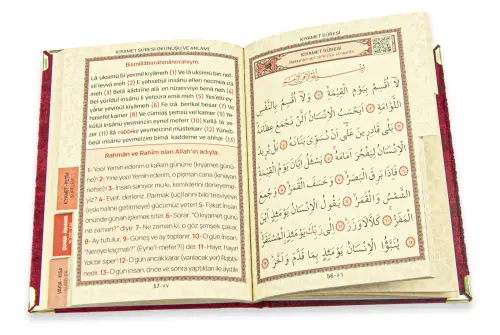 KIYAMET SÛRESİ OKUNUŞU VE ANLAMI
Bismillâhirrahmânirrahîym.
Lâ uksimu bi yevmil kıyâmeh (1) Ve lâ uksimu bin nef-
sil levvâ meh (2) E yahsebül insânü ellen necmea ızâ
meh (3) Belâ kâdirîne alâ en nüsevviye benâ neh (4)
Bel yürîdül insânü li yefcüra emâ meh (5) Yes'elü ey-
yâne yevmül kıyâmeh (6) Fe izâ berikal besar (7) Ve
hasefel kamer (8) Ve cümiaş şemsü vel kamer (9) Ye
kûlül insânü yevmeizin eynel mefer (10) Kellâ lâ ve-
zer (11) İlâ rabbike yevmeizinil müstekarr (12) Yüneb-
beül insânü yevmeizin bimâ kaddeme ve ahhar (13)
Rahmân ve Rahîm olan Allah'ın adıyla.
1- Yoo! Yemin ederim o kalkım gününe (kıyamet günü-
ne)! 2- Yine yoo! Yemin ederim, o pişman cana (kınayan
nefse)! 3- İnsan sanıyor mu ki, kemiklerini derleyeme-
yiz? 4- Evet, derleriz. Parmak (uç)larını bile tesviyeye
(eski haline getirmeye) gücümüz yeter! 5- Fakat insan
önünde günah işlemek ister. 6- Sorar: "O kıyamet günü
ne zaman?" diye. 7- Ne zaman ki, o göz şimşek çakar,
8- Ay tutulur, 9- Güneş ve ay toplanır. 10- O gün insan:
"Nereye kaçmalı?" (Eyne'l-mefer?!) der. 11- Hayır, hayır!
Yok bir siper! 12- O gün ancak karar (varılacak yer) Rabbi-
nedir. 13- O gün insan, önce ve sonra yaptıkları ile aydıla-
57-٥٧
KIYAMET SÛRESİ
لَا اُقْسِمُ بِيَوْمِ الْقِيٰمَةِ ﴿١﴾ وَلَا اُقْسِمُ بِالنَّفْسِ
اللَّوَّامَةِ ﴿٢﴾ اَيَحْسَبُ الْاِنْسَانُ اَلَّنْ نَجْمَعَ عِظَامَهُ
﴿٣﴾ بَلٰى قَادِرٖينَ عَلٰٓى اَنْ نُسَوِّيَ بَنَانَهُ ﴿٤﴾ بَلْ يُرٖيدُ
الْاِنْسَانُ لِيَفْجُرَ اَمَامَهُ ﴿٥﴾ يَسْـَٔلُ اَيَّانَ يَوْمُ الْقِيٰمَةِ
﴿٦﴾ فَاِذَا بَرِقَ الْبَصَرُ ﴿٧﴾ وَخَسَفَ الْقَمَرُ ﴿٨﴾ وَجُمِعَ
الشَّمْسُ وَالْقَمَرُ ﴿٩﴾ يَقُولُ الْاِنْسَانُ يَوْمَئِذٍ اَيْنَ
الْمَفَرُّ ﴿١٠﴾ كَلَّا لَا وَزَرَ ﴿١١﴾ اِلٰى رَبِّكَ يَوْمَئِذٍ الْمُسْتَقَرُّ
﴿١٢﴾ يُنَبَّؤُا الْاِنْسَانُ يَوْمَئِذٍ بِمَا قَدَّمَ وَاَخَّرَ ﴿١٣﴾